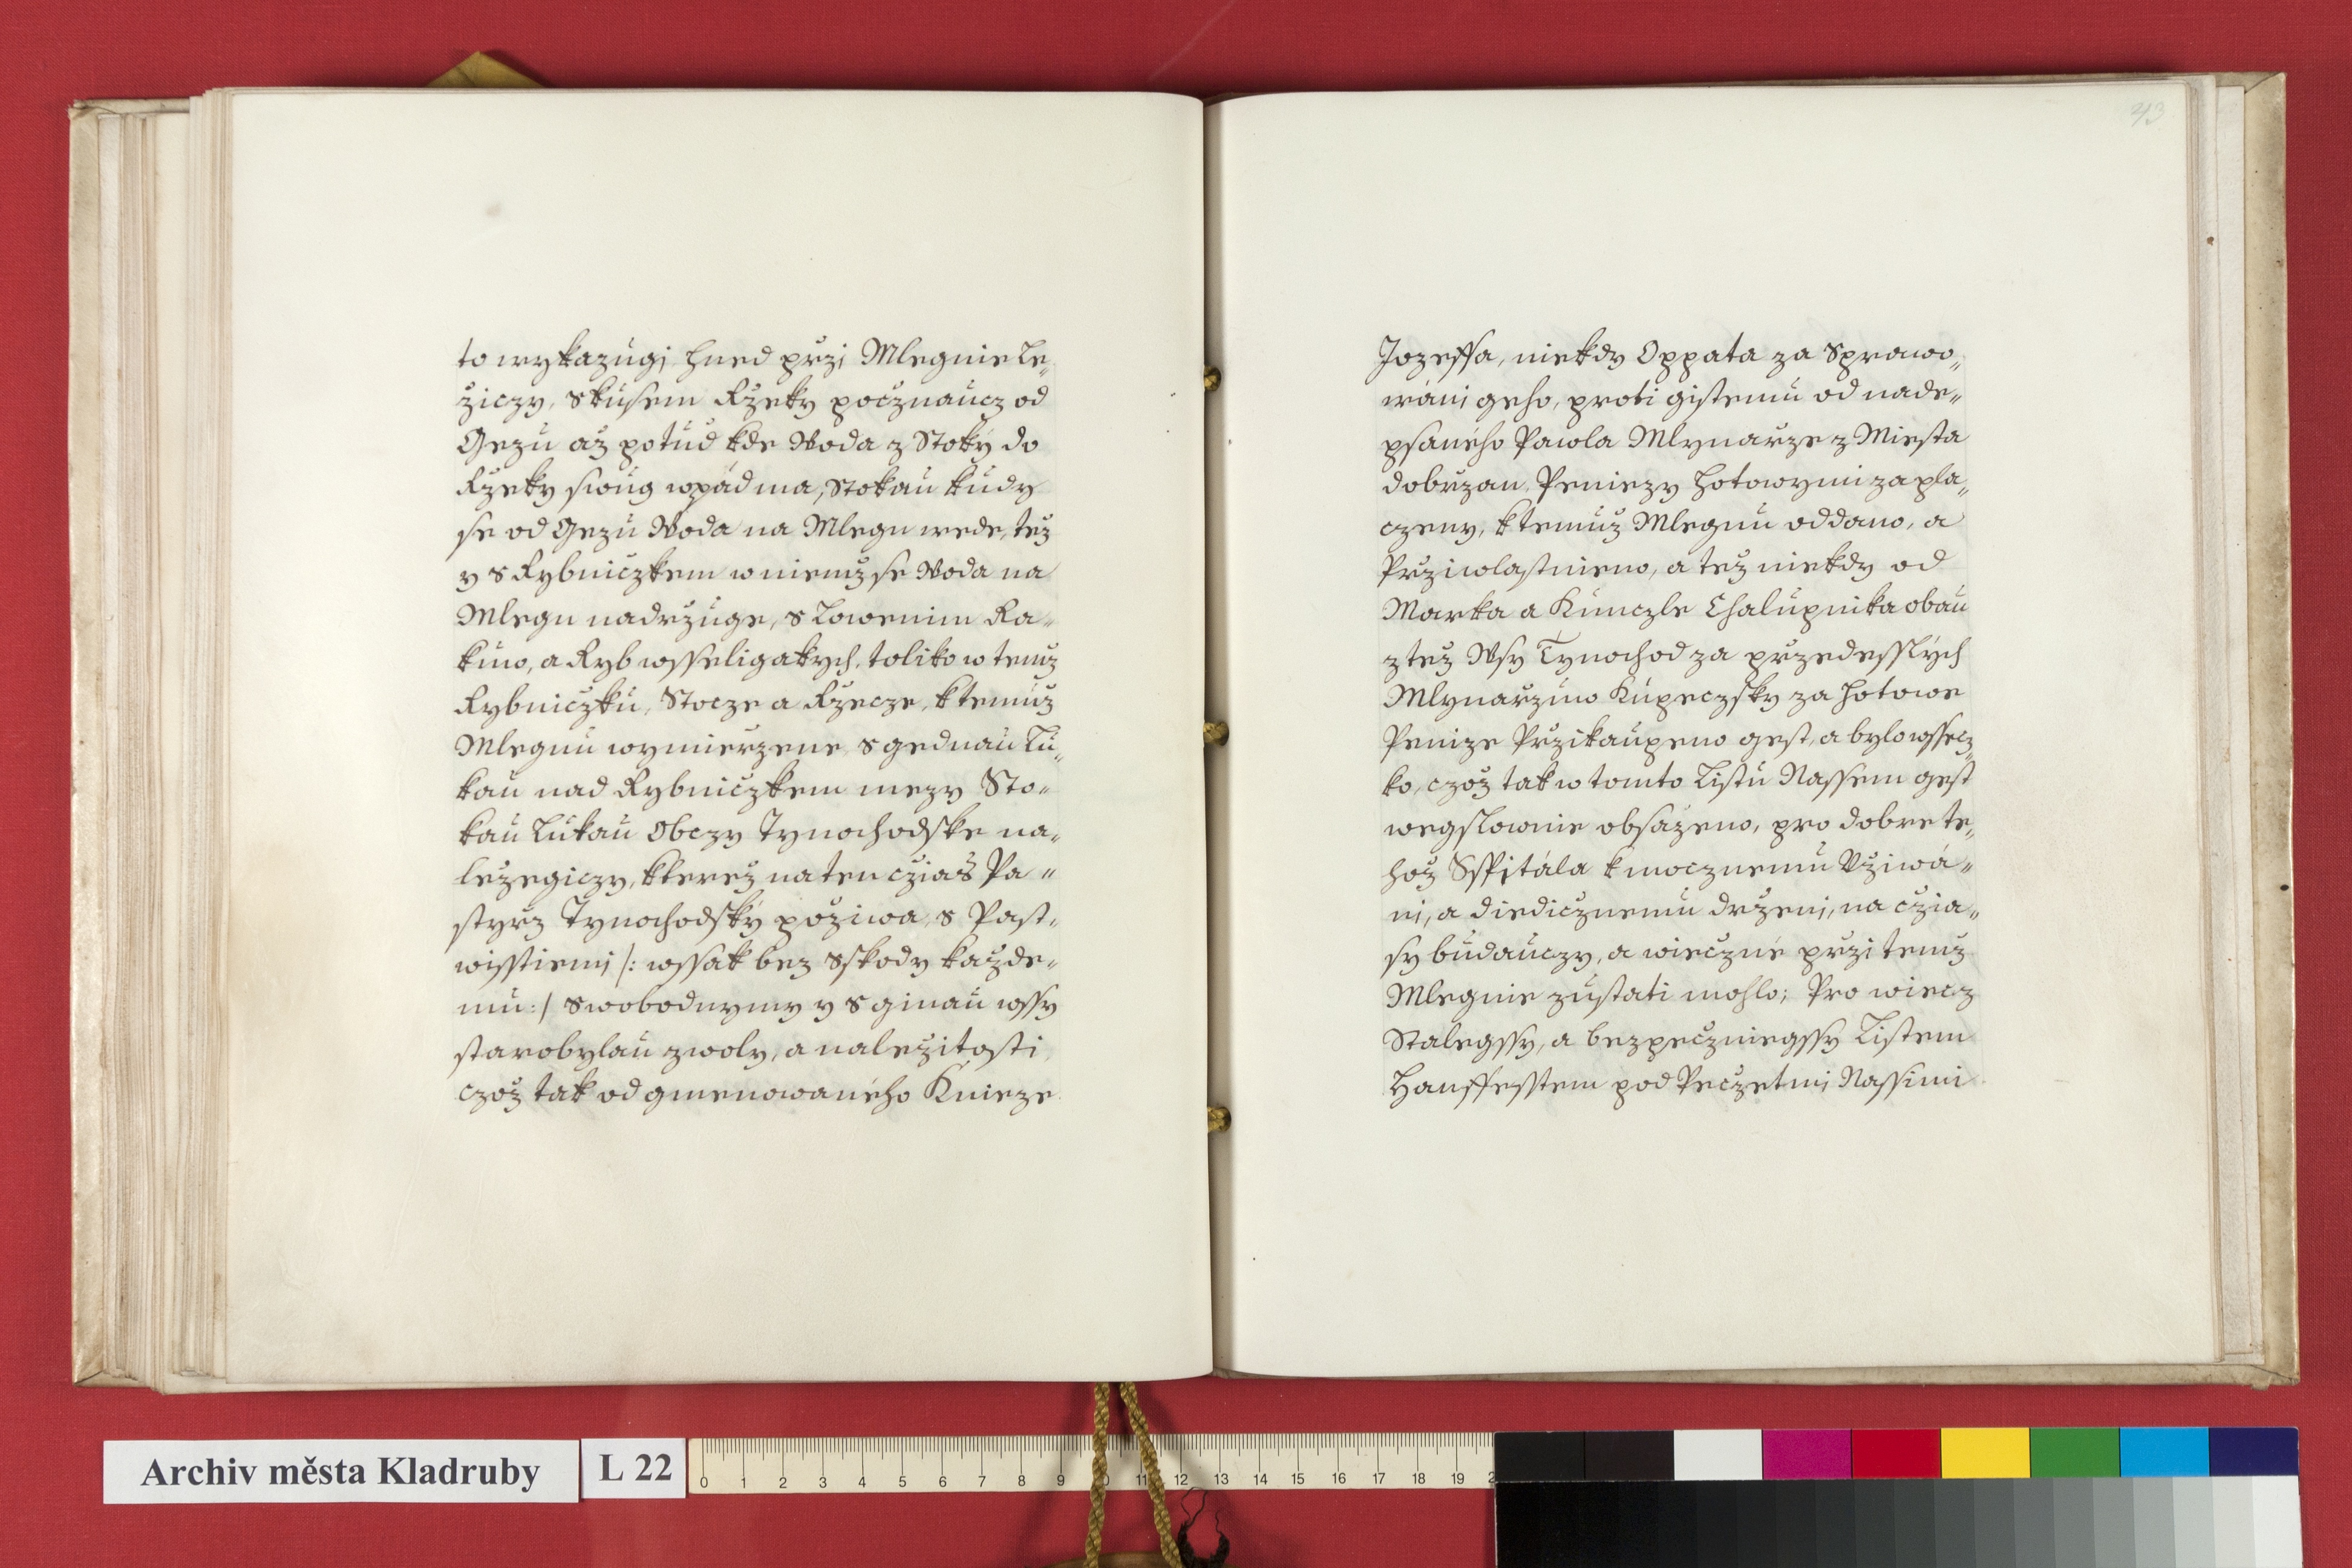 43
to wykazugj hned przi Mlegnie le„
žiczy, s kusem Rzeky počznaucz od
Gezu až potud kde Woda z Stoky do
Rzeky swug wpád ma, Stokau kudy
se od Gezu Woda na Mlegn wede, tež
y s Rybničzkem w niemž se Woda na
Mlegn nadržuge, s Lowenim Ra„
kuw, a Ryb wsseligakych, toliko w temž
Rybničzku, Stocze a Rzecze, k temuž
Mlegnu wymierzene, s gednau Lu„
kau nad Rybničzkem mezy Sto„
kau Lukau Obczy Tynochodske na„
ležegiczy, kterež na ten cžias Pa„
styrz Tynochodský požiwa, s Past„
wisstiemi /: wssak bez Sskody každe„
mu :/ Swobodnymy y s ginau wssy
starobylau zwoly, a naležitosti,
czož tak od gmenowaného Knieze
Jozeffa, niekdy Oppata za Sprawo„
wáni geho, proti gistemu od nade„
psaného Pawla Mlynarze z Miesta
dobrzan, Peniezy hotowymi zapla„
czeny, k temuž Mlegnu oddano, a
Prziwlastnieno, a tež niekdy od
Marka a Kunczle Chalupnika obau
z tež Wsy Tynochod za przedesslých
Mlynarzuw Kupeczsky za hotowe
Penize Przikaupeno gest, a bylo wssecz„
ko, czož tak w tomto Listu Nassem gest
wegslownie obsaženo, pro dobre te„
hož Sspitála k mocznemu Užiwá„
ni, a diedicznemu drženi, na cžia„
sy budauczy, a wiečzné przi temž
Mlegnie zustati mohlo; Pro wiecz
Stalegssy, a bezpečzniegssy Listem
Hanffesstem pod Pečzetmi Nassimi
Archiv města Kladruby
L 22
0 1 2 3 4 5 6 7 8 9 10 11 12 13 14 15 16 17 18 19 2